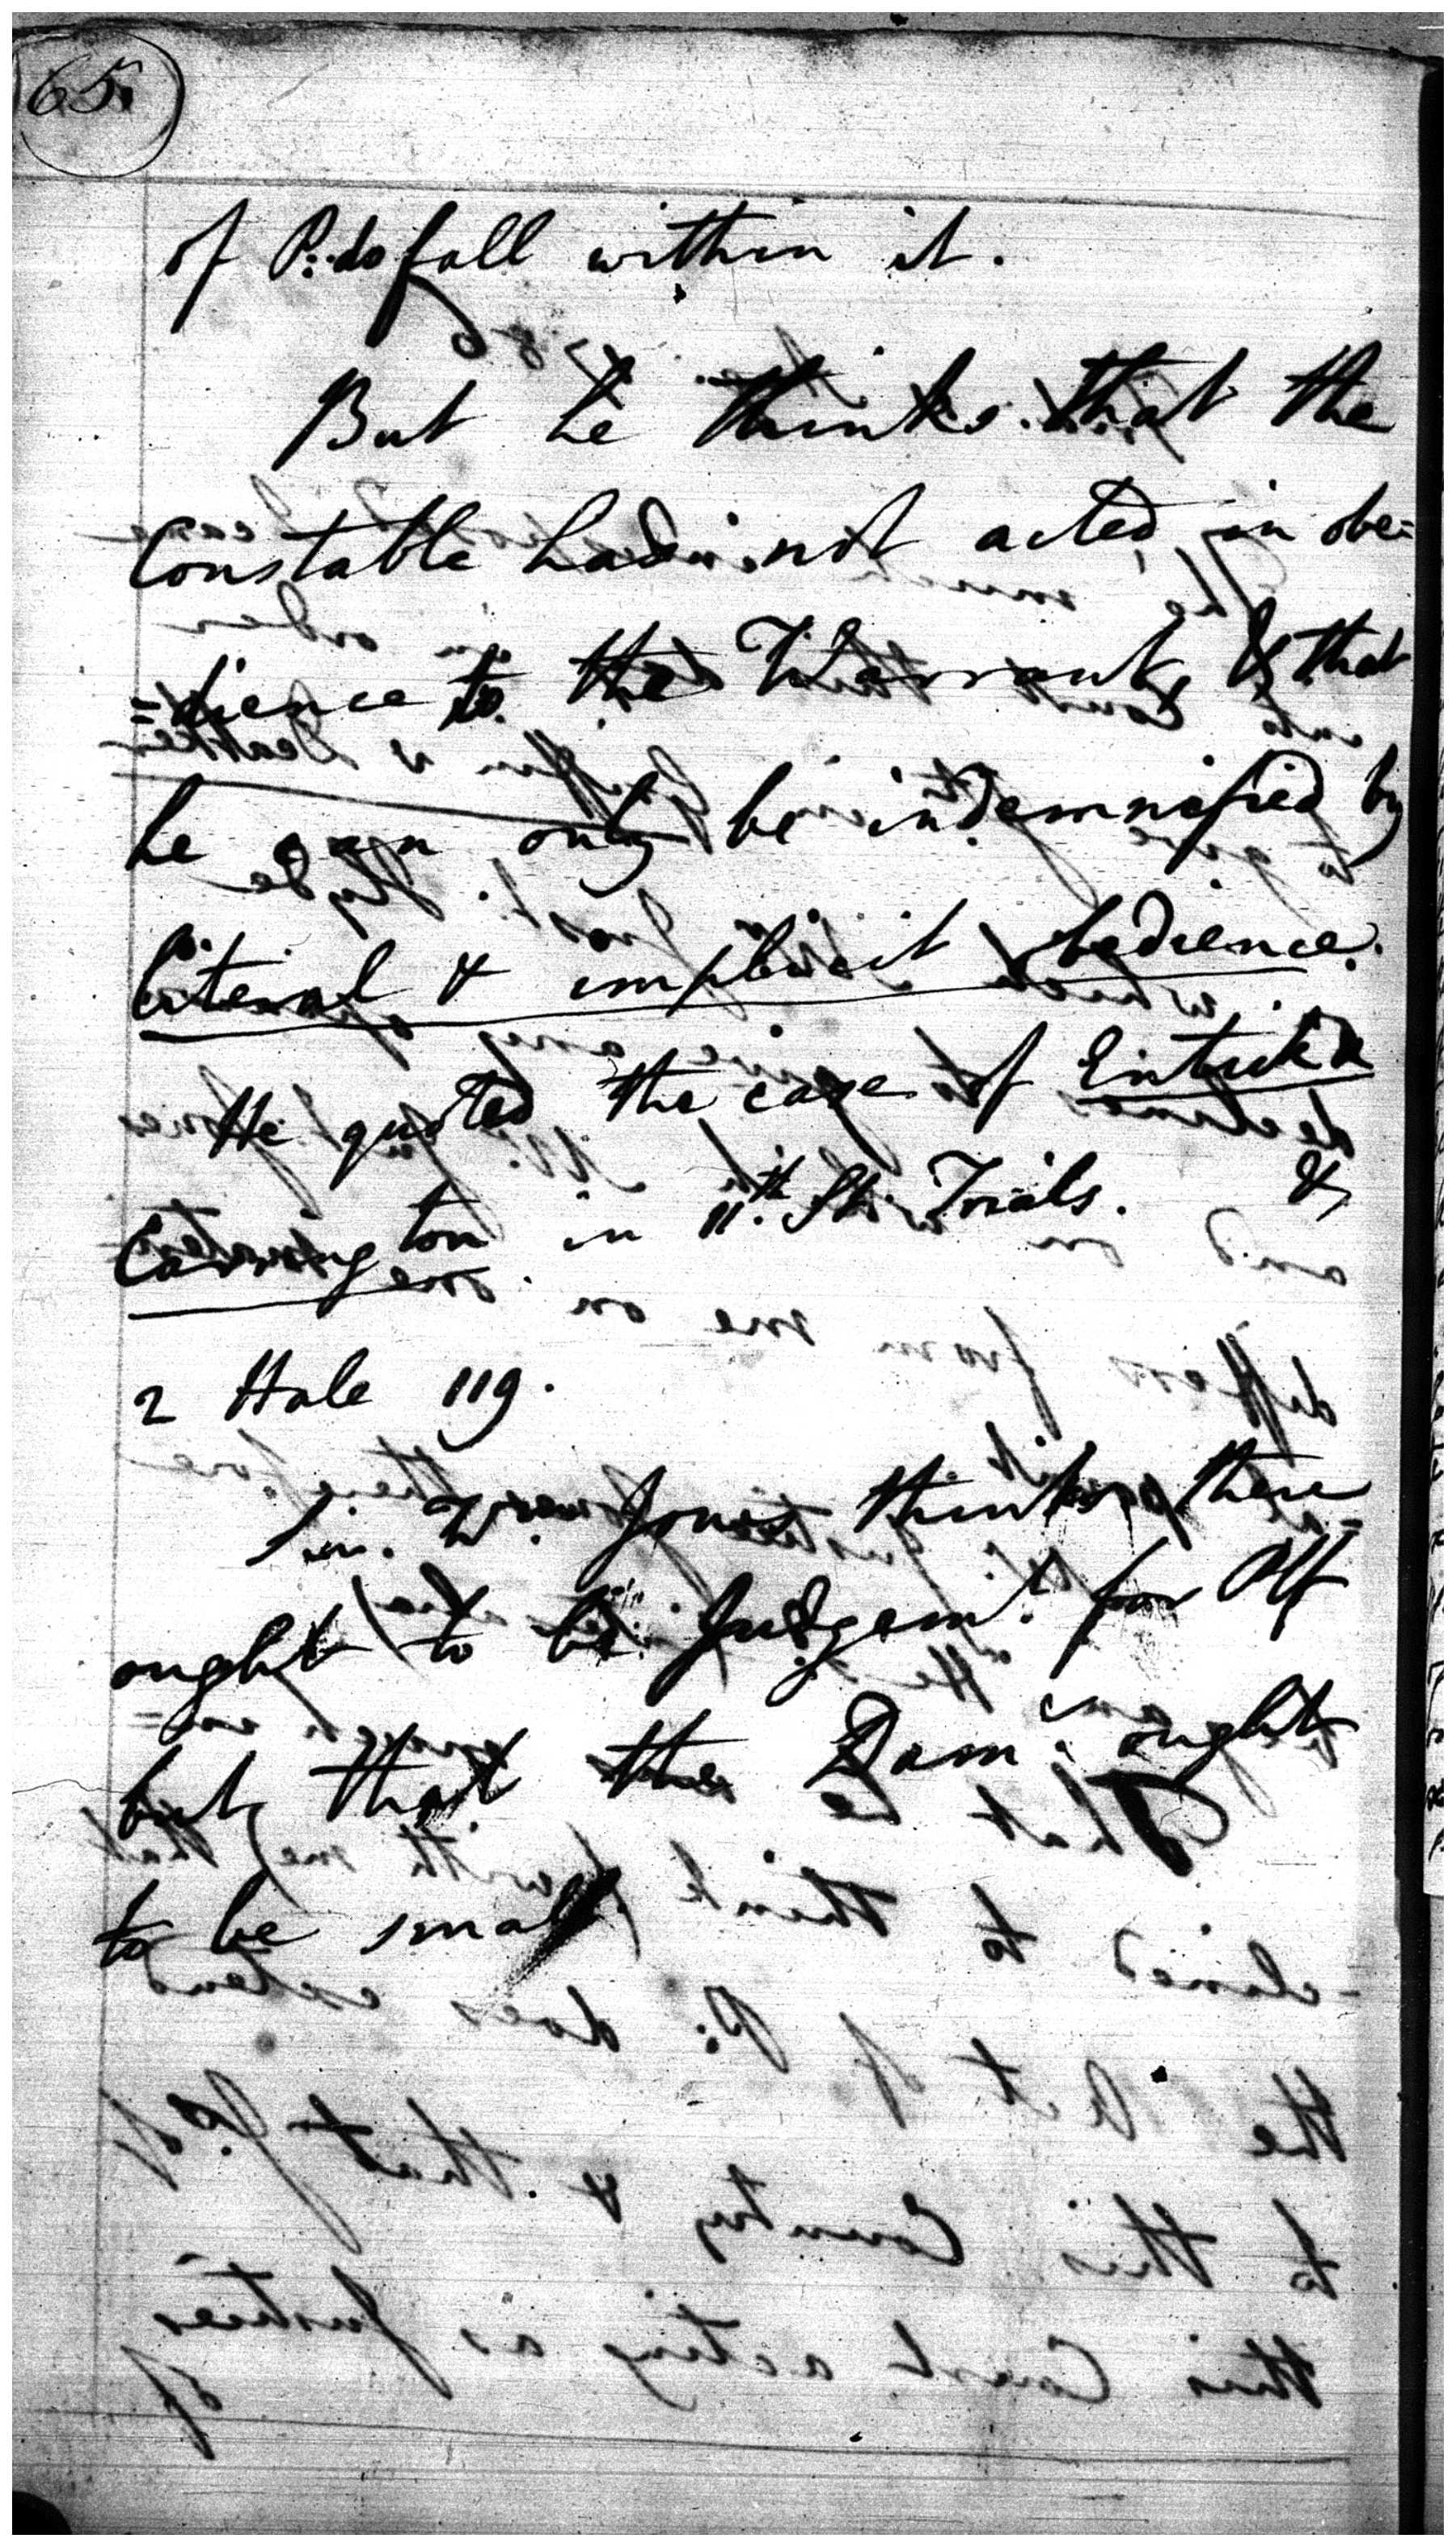 65.
of P: do fall within it.
But he thinks that the
Constable had not acted in obe=
=dience to the Warrant, & that
he can only be indemnified by
literal & implicit obedience.
He quoted the case of Entick &
Carrington in 11th. St: Trials. &
2 Hale 119.
Sir. Wm. Jones thinks there
ought to be Judgemt. for Plf
but, that the Dams. ought
to be small